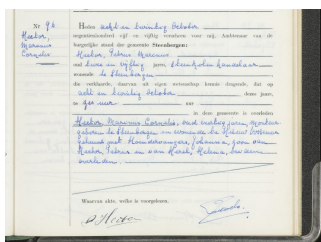 Nr 96
Hector,
Marinus
Cornelis
Heden acht en twintig October
negentienhonderd vijf en vijftig verscheen voor mij, Ambtenaar van de
burgerlijke stand der gemeente Steenbergen:
Hector, Petrus Marinus
oud twee en vijftig jaren, steenkolen handelaar
wonende te Steenbergen
die verklaarde, daarvan uit eigen wetenschap kennis dragende, dat op
acht en twintig October dezes jaars,
te zes uur uur
in deze gemeente is overleden
Hector Marinus Cornelis, oud jaren,
geboren te Steenbergen en wonende te Nieuw Vossemeer
gehuwd met Johanna, zoon van
Hector, Petrus en van Helena, beiden
overleden.
Waarvan akte, welke is voorgelezen.
P Hector